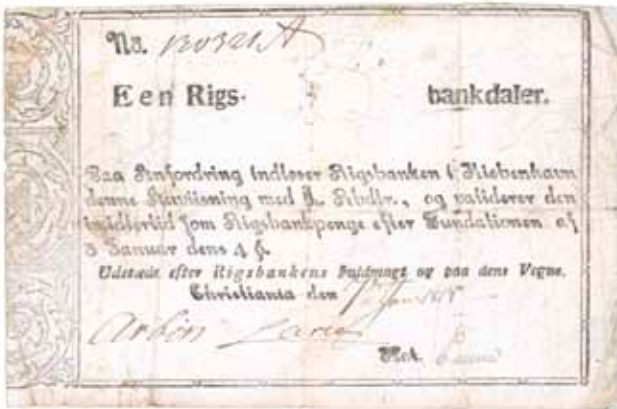 No. 120321 A
Een Rigs- bankdaler.
Paa Anfordring indløser Rigsbanken i Kiøbenhavn
denne Anviisning med 1. Rbdlr., og validerer den
imidlertid som Rigsbankpenge efter Fundationen af
5 Januar dens 4 §.
Udstædt efter Rigsbankens Fuldmagt og paa dens Vegne.
Christiania den
Not.